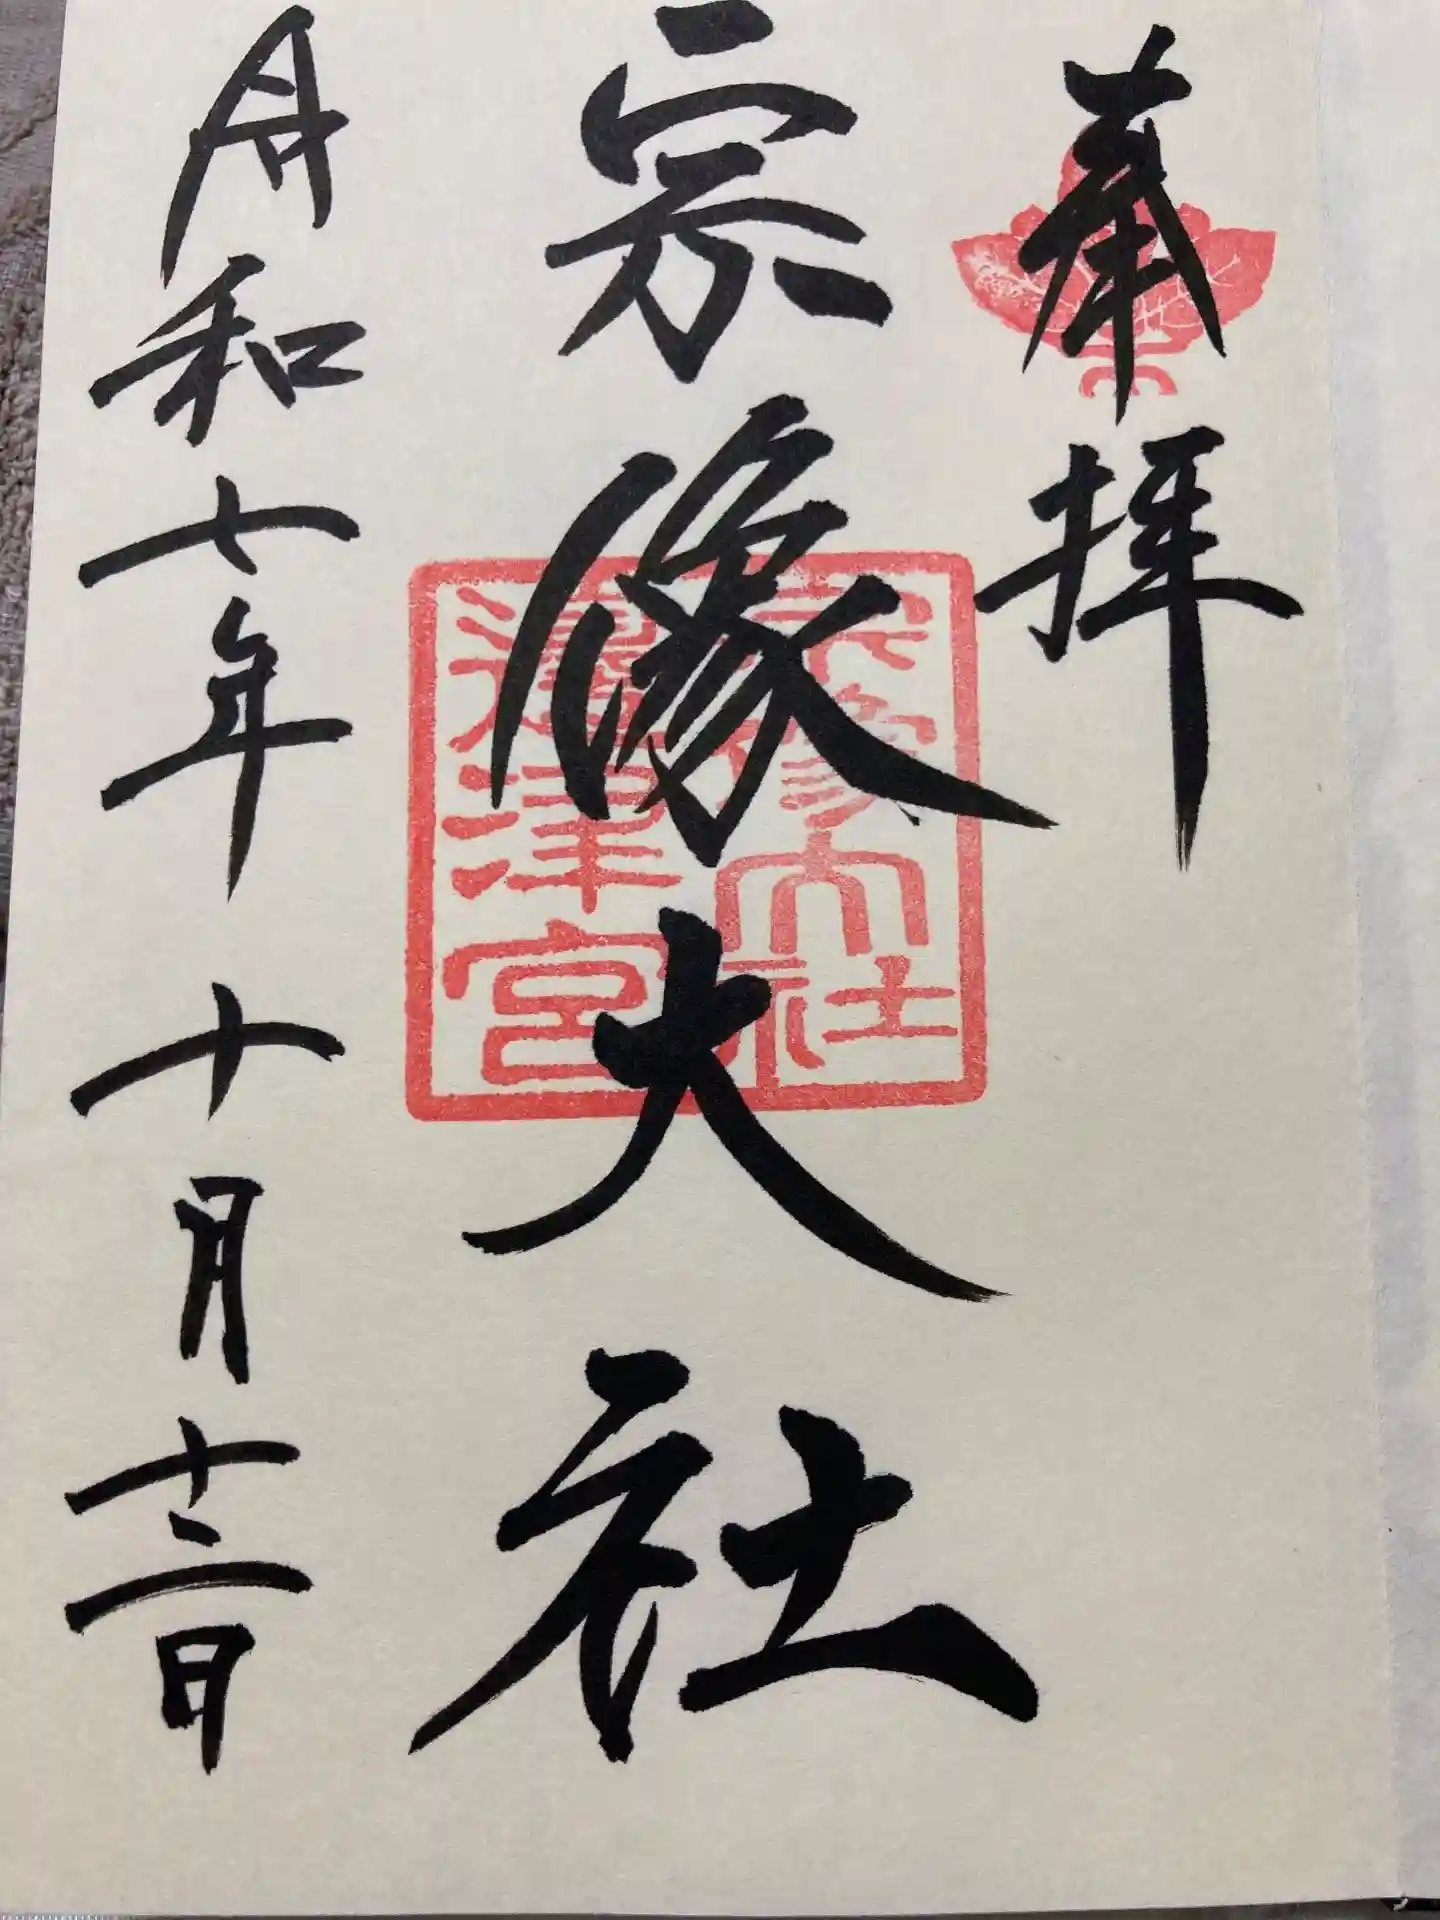 奉拝
宗像大社
宗像大社
邊津宮
令和七年 十月十二日